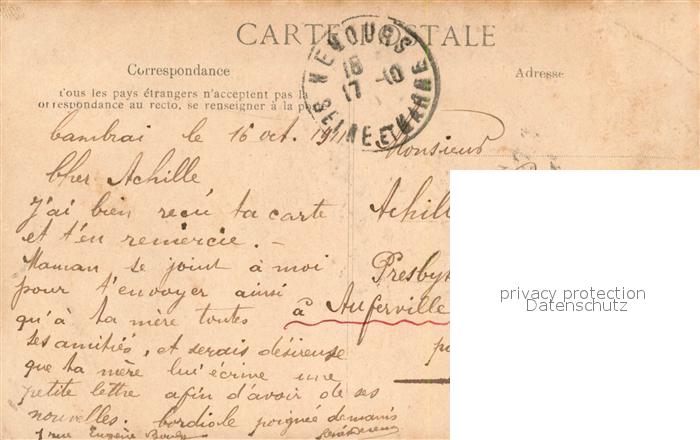 CARTE POSTALE
Correspondance
Adresse
Tous les pays étrangers n'acceptent pas la
correspondance au recto, se renseigner à la po
NEMOURS
18
17 -10
SEINE ET MARNE
Cambrai le 16 oct. 1911
Cher Achille
J'ai bien reçu ta carte
et t'en remercie. -
Maman se joint à moi
pour t'envoyer ainsi
qu'à ta mère toutes
ses amitiés, et serais désireuse
que ta mère lui écrive une
petite lettre afin d'avoir de ses
nouvelles. Cordiale poignée de mains
1 rue Eugène
Monsieur
Achill
Presbyt
à Auferville
p
privacy protection
Datenschutz